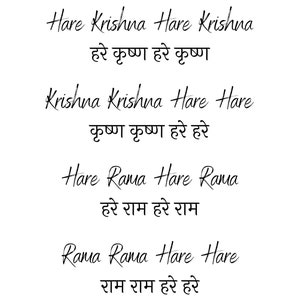 Hare Krishna Hare Krishna
हरे कृष्ण हरे कृष्ण
Krishna Krishna Hare Hare
कृष्ण कृष्ण हरे हरे
Hare Rama Hare Rama
हरे राम हरे राम
Rama Rama Hare Hare
राम राम हरे हरे